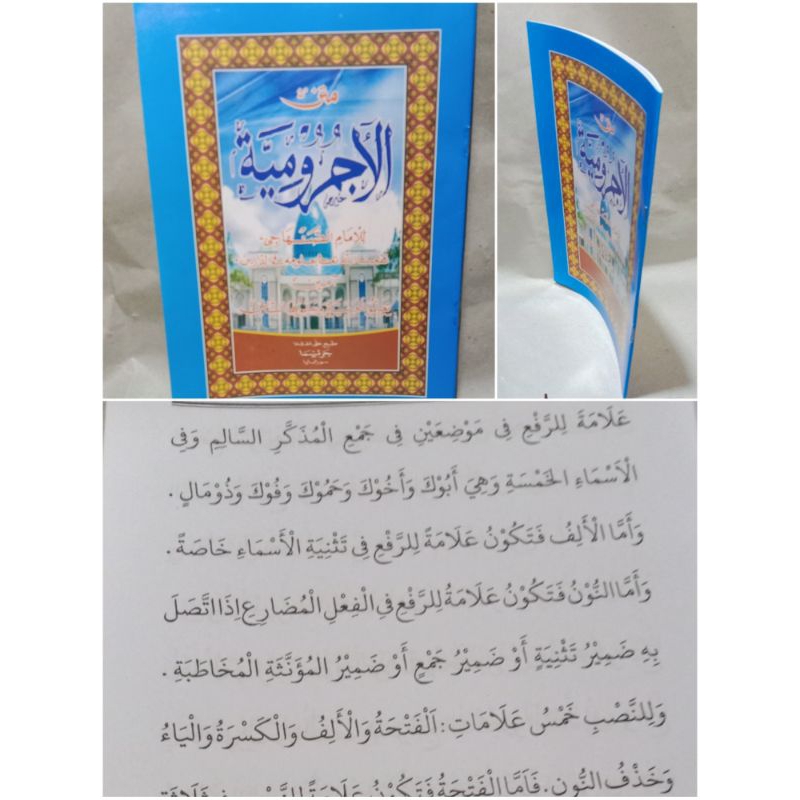 متن
الأجرومية
للإمام الصنهاجي
الأجرومية
عَلَامَةً لِلرَّفْعِ فِى مَوْضِعَيْنِ فِى جَمْعِ الْمُذَكَّرِ السَّالِمِ وَفِى
الْاَسْمَاءِ الْخَمْسَةِ وَهِيَ أَبُوْكَ وَأَخُوْكَ وَحَمُوْكَ وَفُوْكَ وَذُوْمَالٍ .
وَأَمَّا الْأَلِفُ فَتَكُوْنُ عَلَامَةً لِلرَّفْعِ فِى تَثْنِيَةِ الْأَسْمَاءِ خَاصَةً .
وَأَمَّا النُّوْنُ فَتَكُوْنُ عَلَامَةُ لِلرَّفْعِ فِى الْفِعْلِ الْمُضَارِعِ اِذَا اتَّصَلَ
بِهِ ضَمِيْرُ تَثْنِيَةٍ أَوْ ضَمِيْرُ جَمْعٍ أَوْ ضَمِيْرُ المُؤَنَّثَةِ الْمُخَاطَبَةِ .
وَلِلنَّصْبِ خَمْسُ عَلَامَاتٍ : اَلْفَتْحَةُ وَالْأَلِفُ وَالْكَسْرَةُ وَالْيَاءُ
وَحَذْفُ النُّونِ . فَاَمَّا الْفَتْحَةُ فَتَكُوْنُ عَلَامَةً لِلنَّصْبِ فِى ثَلَاثَةِ